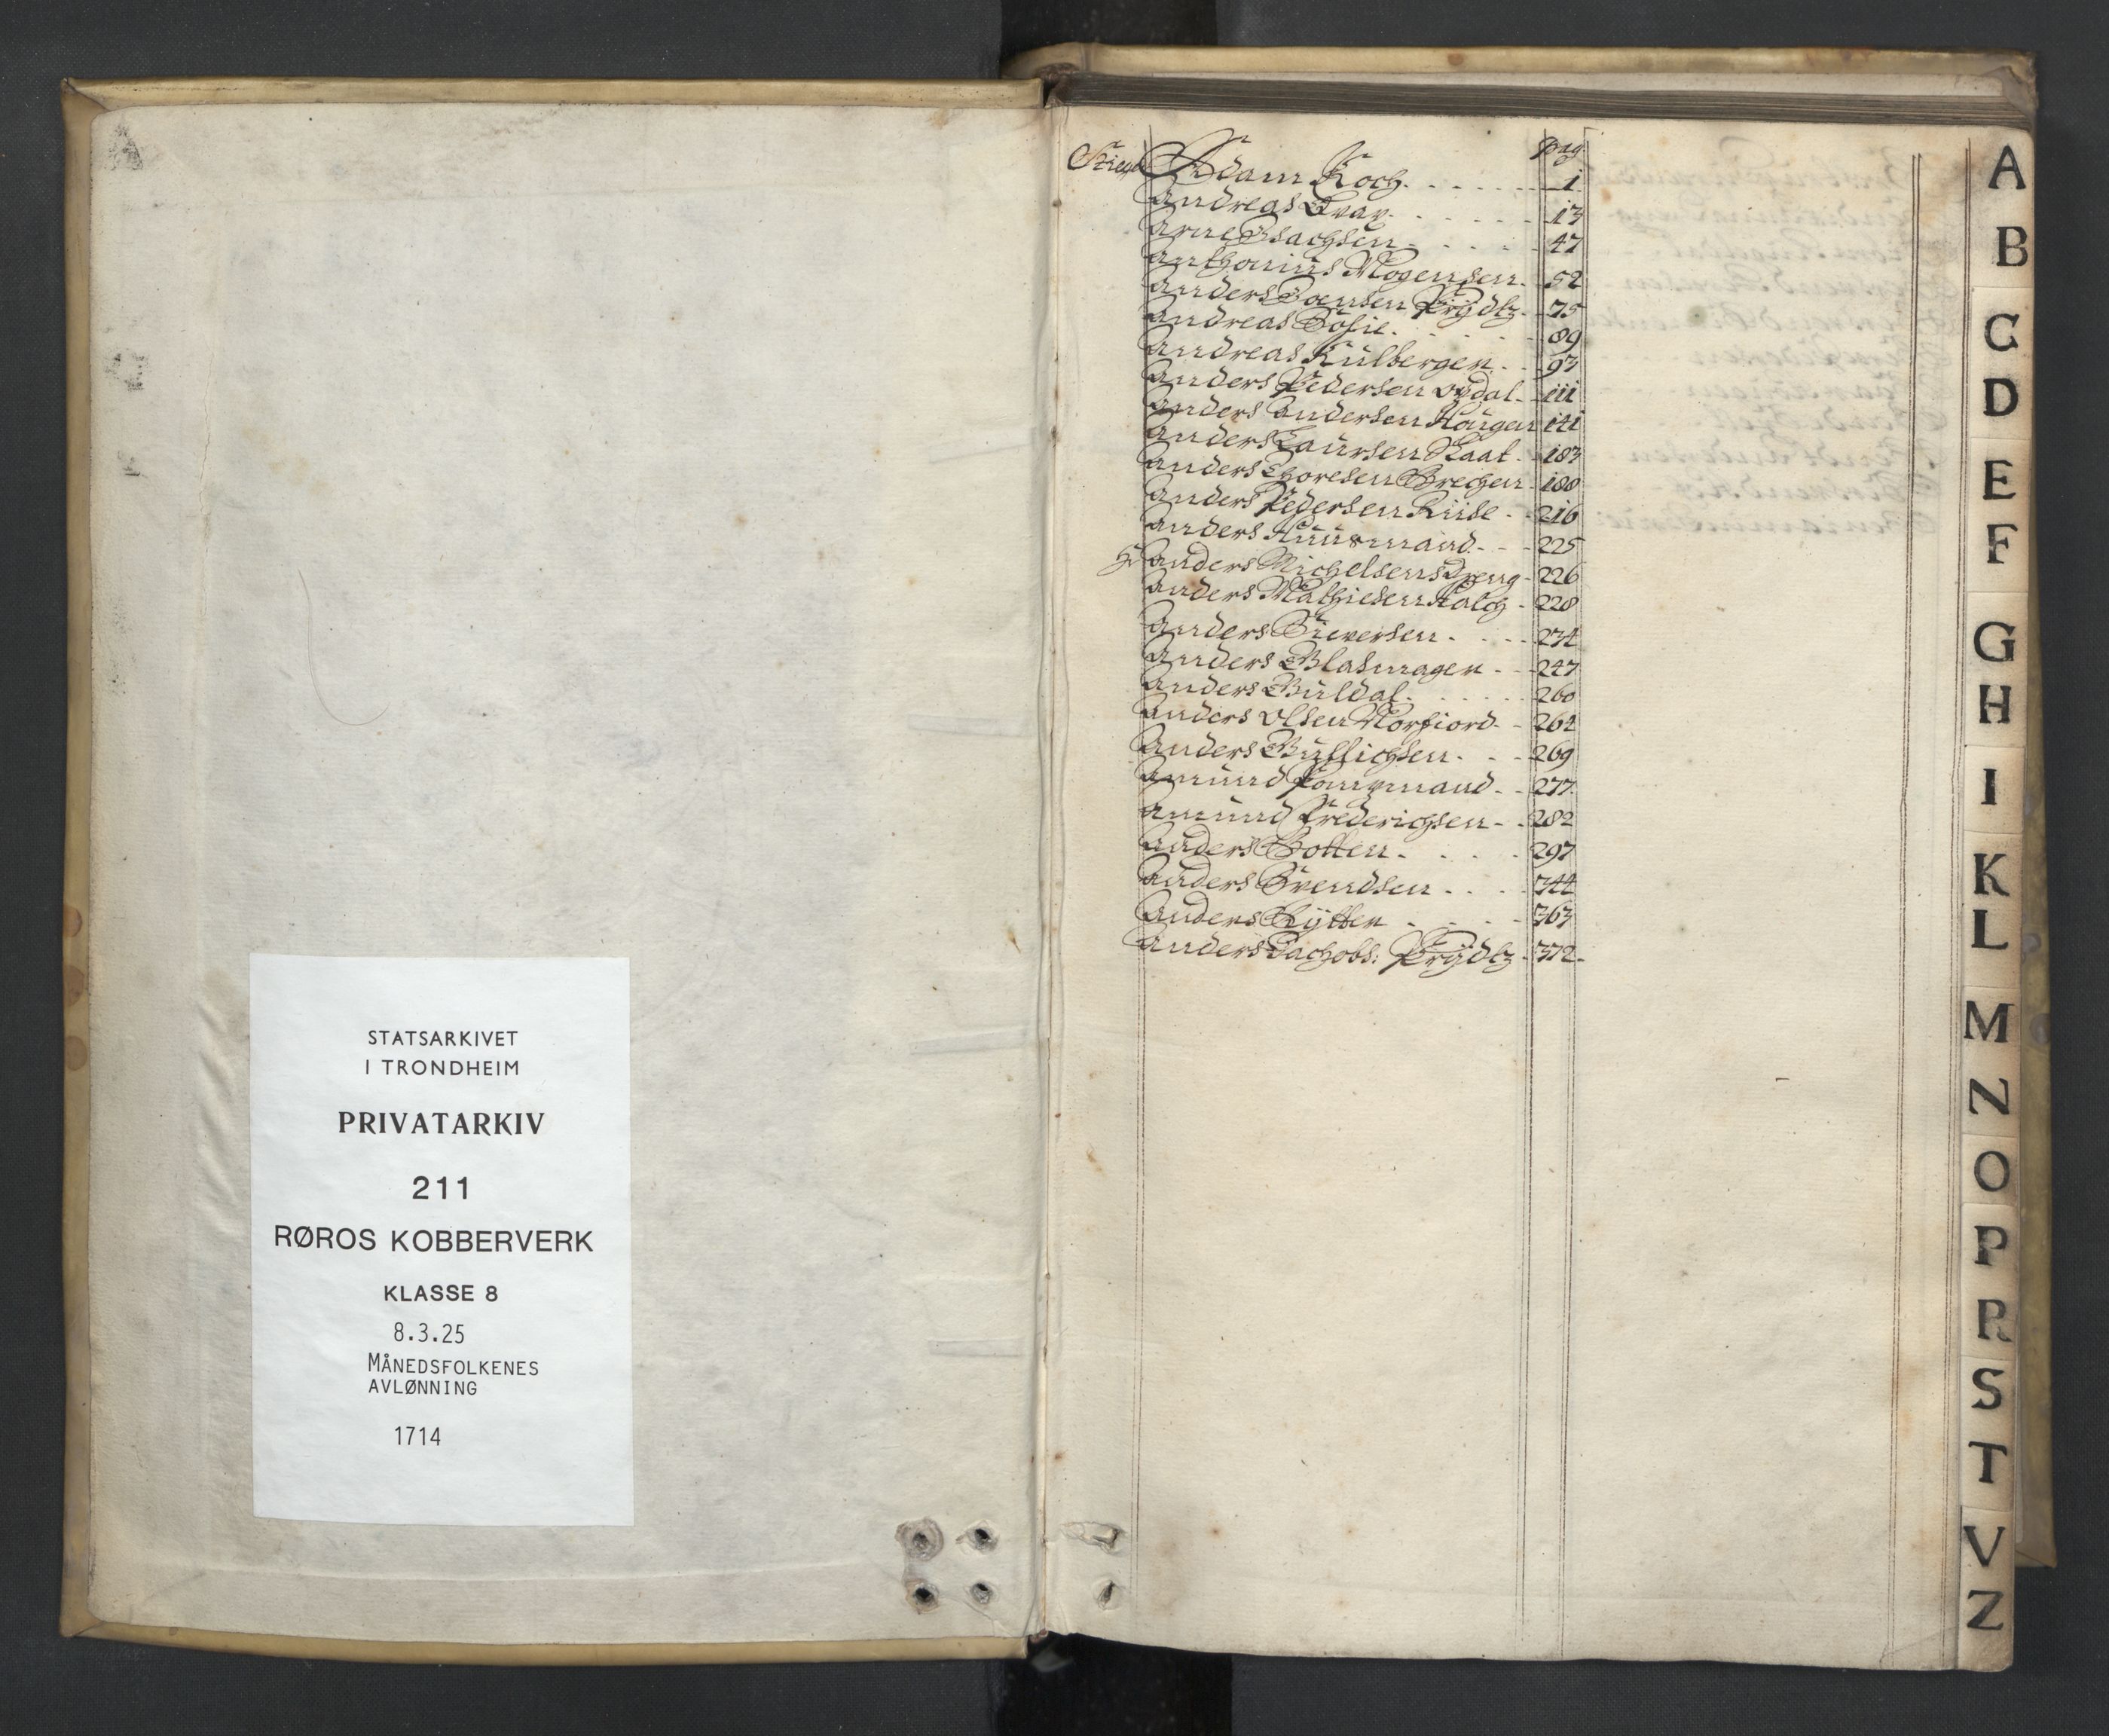 STATSARKIVET
I TRONDHEIM
PRIVATARKIV
211
RØROS KOBBERVERK
KLASSE 8
8.3.25
MÅNEDSFOLKENES
AVLØNNING
1714
pag
Adam Koch. 1
Andreas 13
Arne Isachsen 47
Anthonius Mogensen 52
Anders Joensen Prÿdtz 75
Andreas 89
Andreas Külberger 93
Anders Pedersen opdal 111
Anders Andersen Haügen 141
Anders Laursen Raat 183
Anders Thoresen Brechen 188
Anders Pedersen Riise 216
Anders Huusmand 225
Anders Michelsen 226
Anders Mathiesen Kalch 228
Anders Siversen 234
Anders Blasmager 247
Anders Büldal 260
Anders olsen Norfiord 264
Anders Bütlichsen 269
Amünd 277
Amünd Frederichsen 282
Anders Botten 297
Anders Svendsen 344
Anders Rÿtter 363
Anders Jachobs: Prÿdtz 372
A
B
C
D
E
F
G
H
I
K
L
M
N
O
P
R
S
T
V
Z